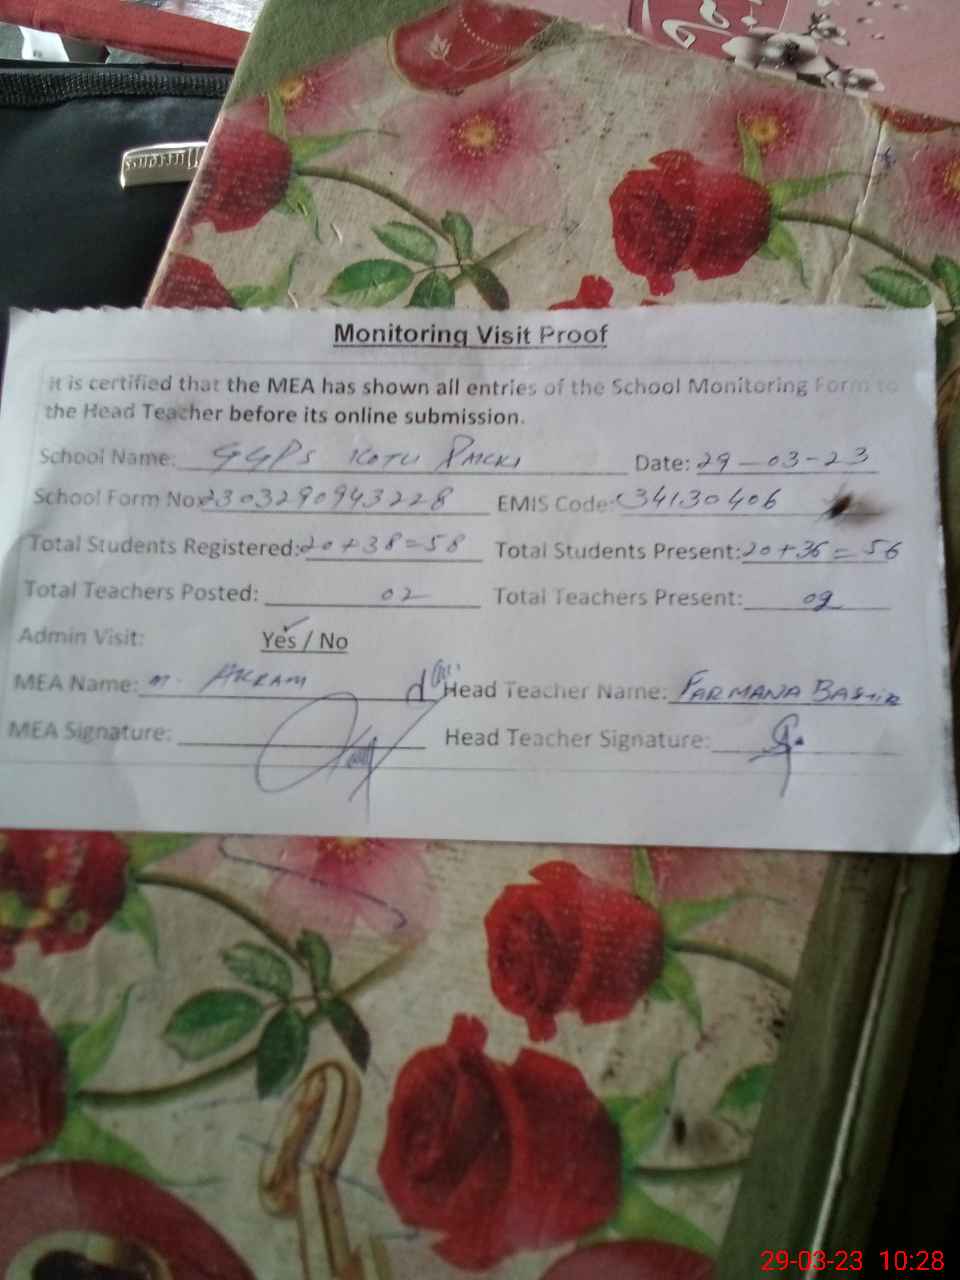 Monitoring Visit Proof
it is certified that the MEA has shown all entries of the School Monitoring Form to
the Head Teacher before its online submission.
School Name: GGPS KOTLI Date: 29-03-23
School Form No: 2303290943228 EMIS Code: 34130406
Total Students Registered: 20+38=58 Total Students Present: 20+36=56
Total Teachers Posted: 02 Total Teachers Present:
Admin Visit: Yes / No
MEA Name: M. AKRAM Head Teacher Name: FARMANA BASHIR
MEA Signature: Head Teacher Signature:
29-03-23 10:28